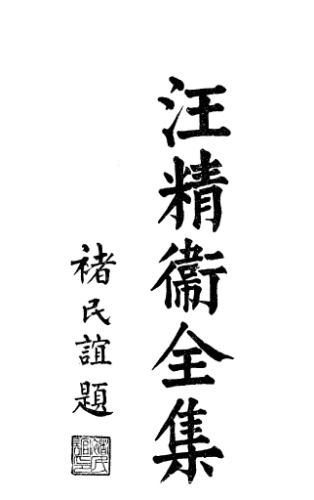 汪精衞全集
褚民誼題